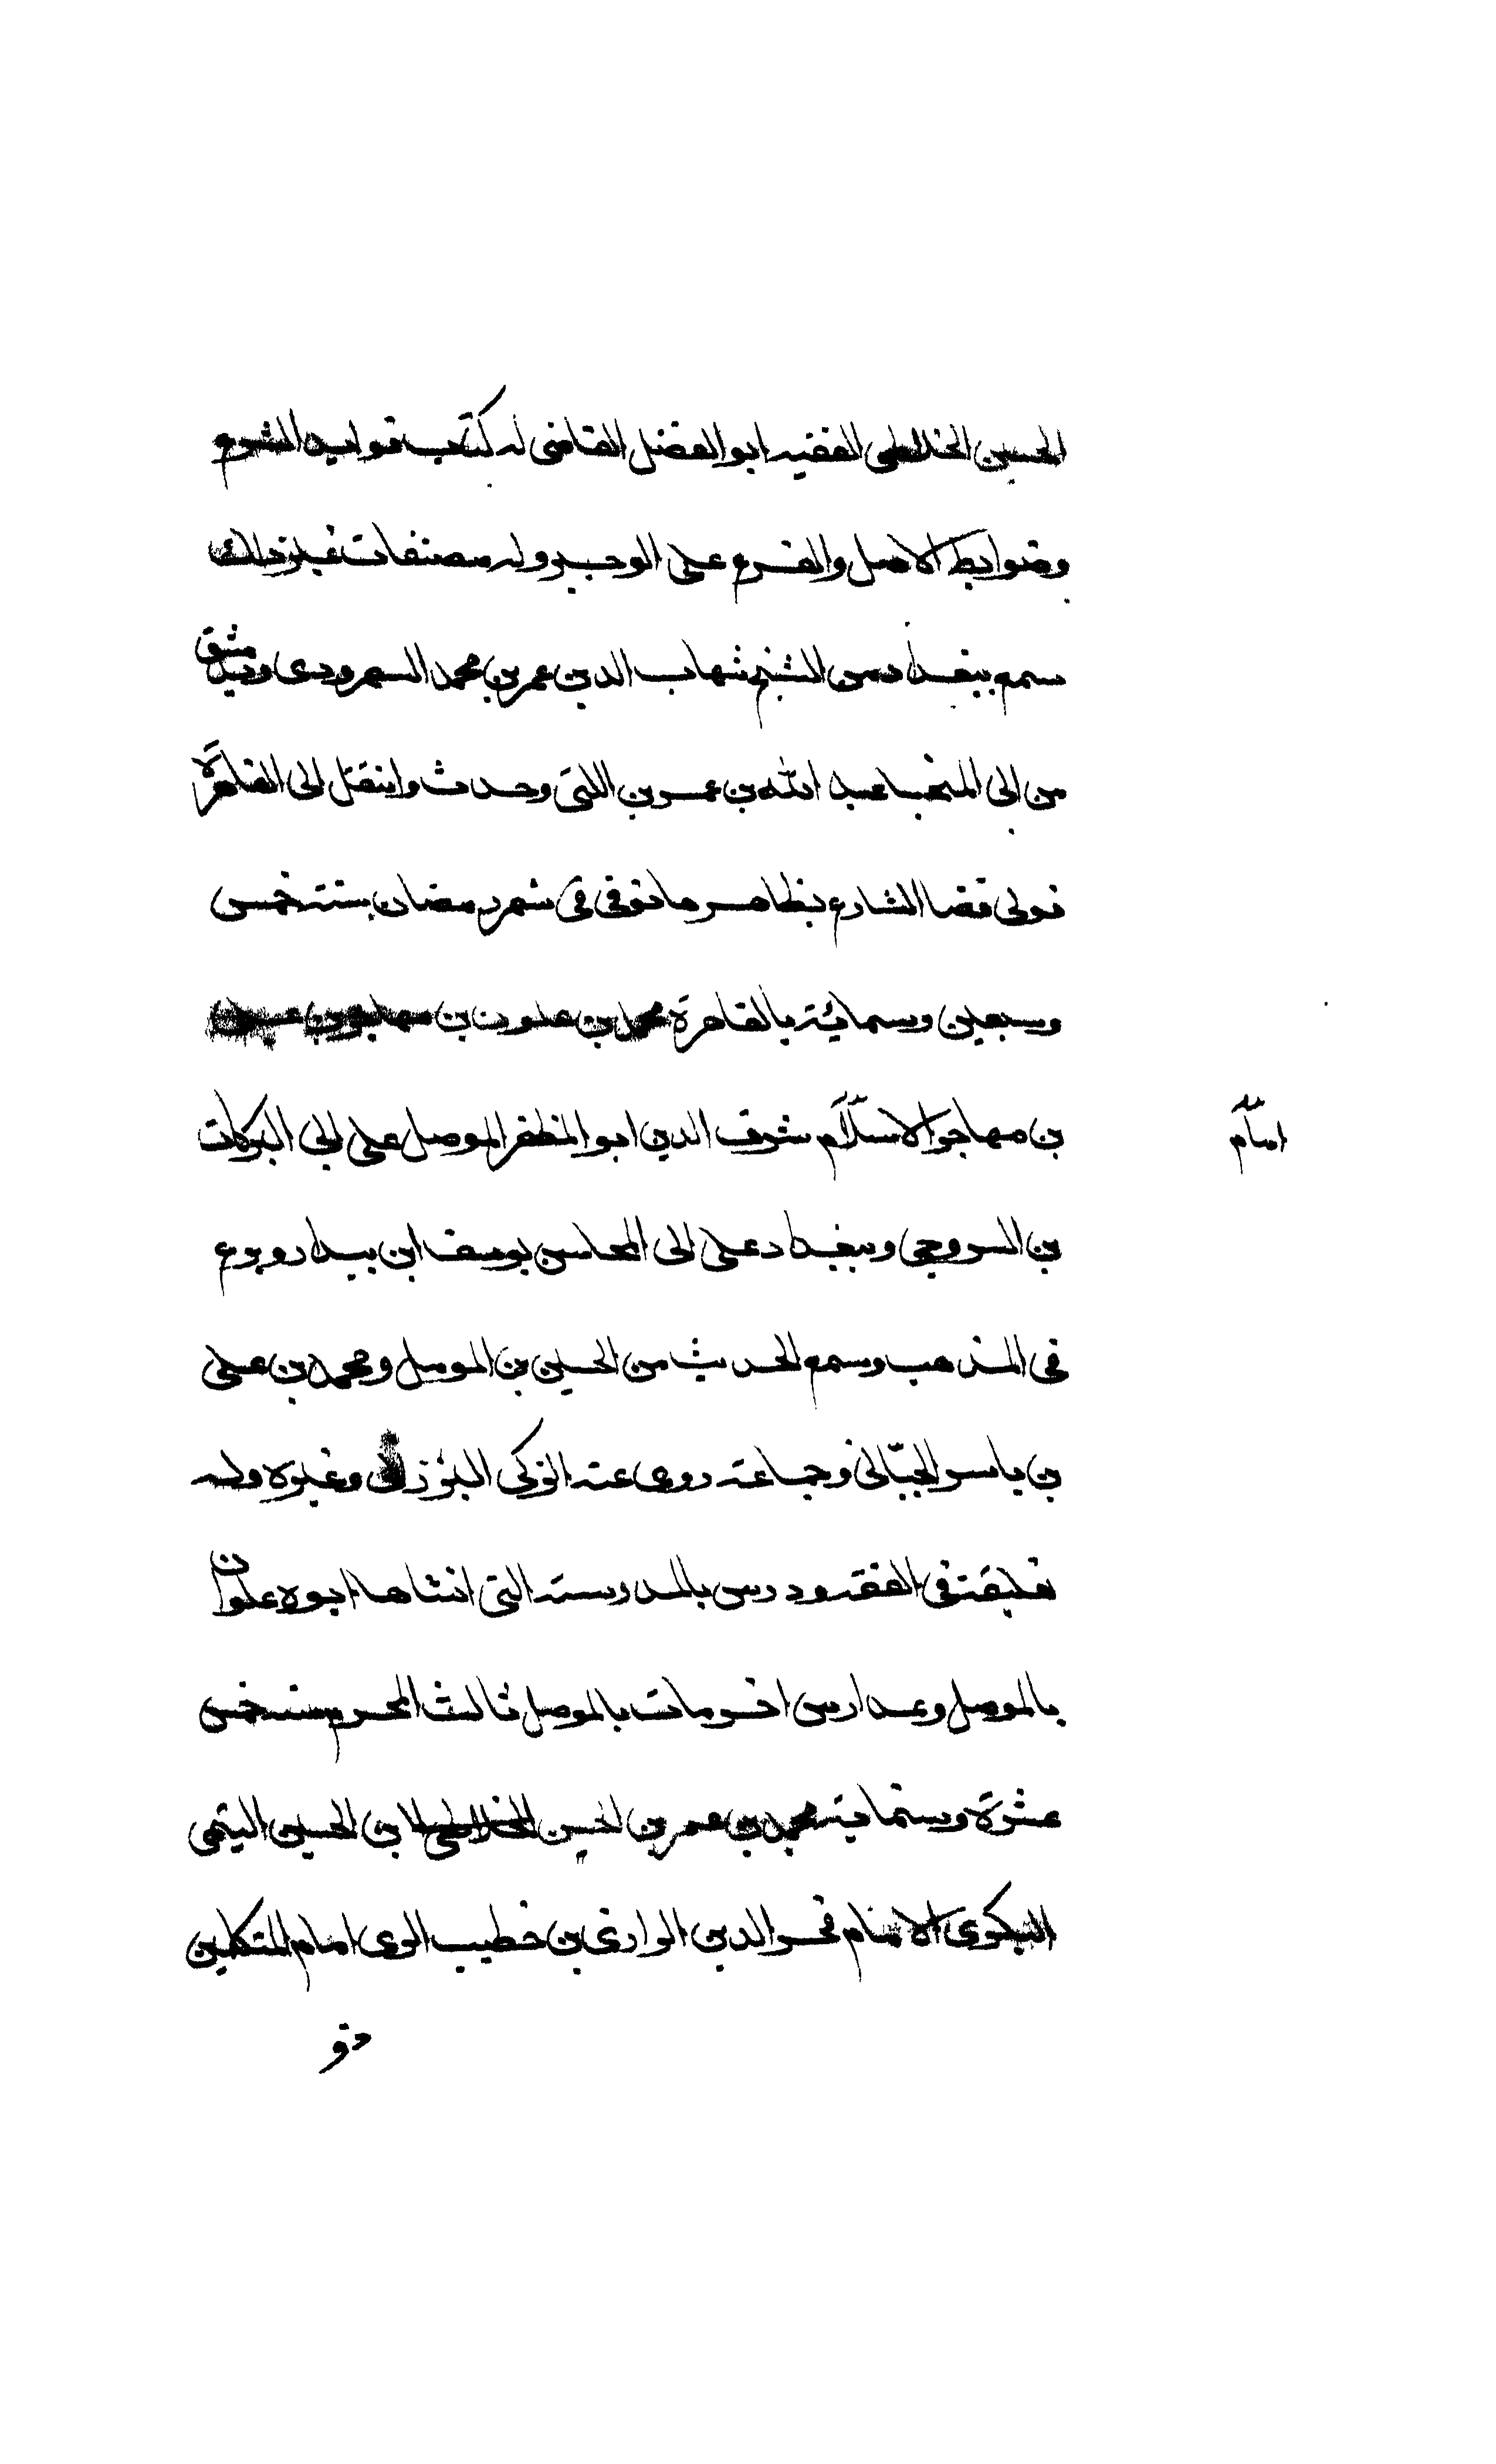 الحسين الخلاطى الفقيه ابو الفضل القاضى له كتاب قوايد الشرع
وضوابط الاصل والفرع على الوجيز وله مصنفات غير ذلك
سمع ببغداد من الشيخ شهاب الدين عمر بن محمد السهرودى وبدمشق
من ابى المنجا عبد الله بن عمر بن اللتى وحدث وانتقل الى القاهرة
فولى قضا الشارع بظاهرها توفى فى شهر رمضان سنة خمس
وسبعين وستمائة بالقاهرة محمد بن علوان بن مهاجر بن على
بن مهاجر الاسلام شرف الدين ابو المظفر الموصل على ابى البركات
امام
بن السروجى وببغداد على ابى المحاسن يوسف ابن بندار وبرع
فى المذهب وسمع الحديث من الحسين بن الموصل ومحمد بن على
بن ياسر الجيّانى وجماعة روى عنه الزكى البرزالى وغيره وله
تعليقة فى الفقه ودرس بالمدرسة التى انشاها ابوه علوان
بالموصل وبمدارس اخر مات بالموصل ثالث المحرم سنة خمس
عشرة وستماية محمد بن عمر بن الحسين بن الحسين التيمى
البكرى الامام فخر الدين الرازى بن خطيب الرى امام المتكلمين
ذو